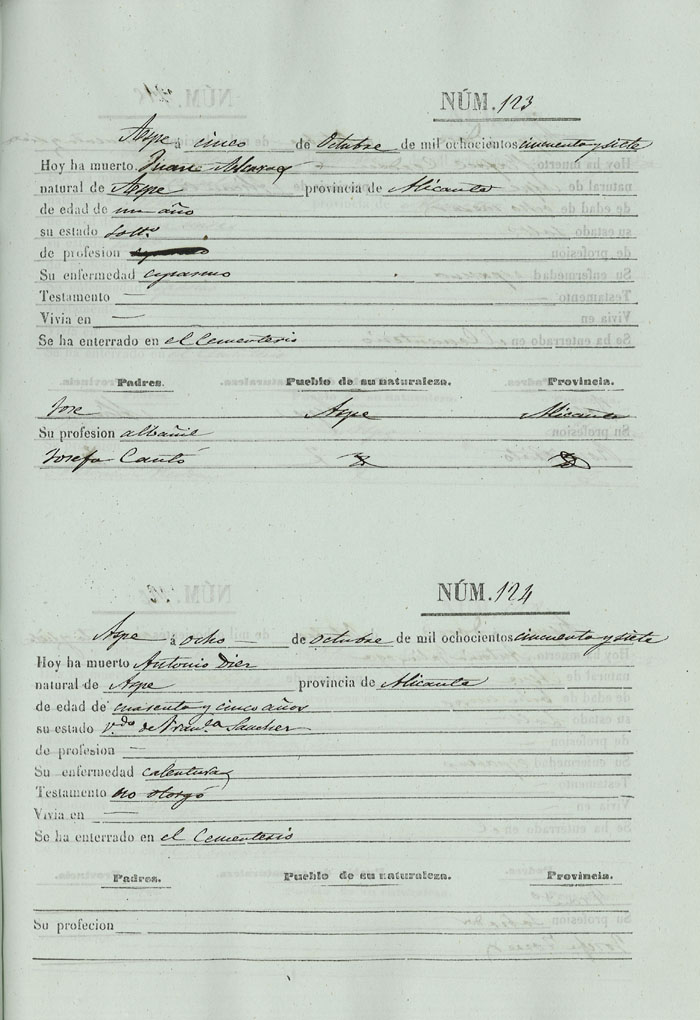 NÚM. 123
Aspe á cinco de Octubre de mil ochocientos cincuenta y siete
Hoy ha muerto Juan Alcaraz
natural de Aspe provincia de Alicante
de edad de un año
su estado Soltº
de profesion
Su enfermedad espasmo
Testamento —
Vivia en —
Se ha enterrado en el Cementerio
Padres. Pueblo de su naturaleza. Provincia.
Jose Aspe Alicante
Su profesion albañil
Josefa Cantó
NÚM. 124
Aspe á ocho de Octubre de mil ochocientos cincuenta y siete
Hoy ha muerto Antonio Dier
natural de Aspe provincia de Alicante
de edad de cuarenta y cinco años
su estado v.do de Fran.ca Sancher
de profesion —
Su enfermedad calentura
Testamento no otorgó
Vivia en —
Se ha enterrado en el Cementerio
Padres. Pueblo de su naturaleza. Provincia.
Su profecion